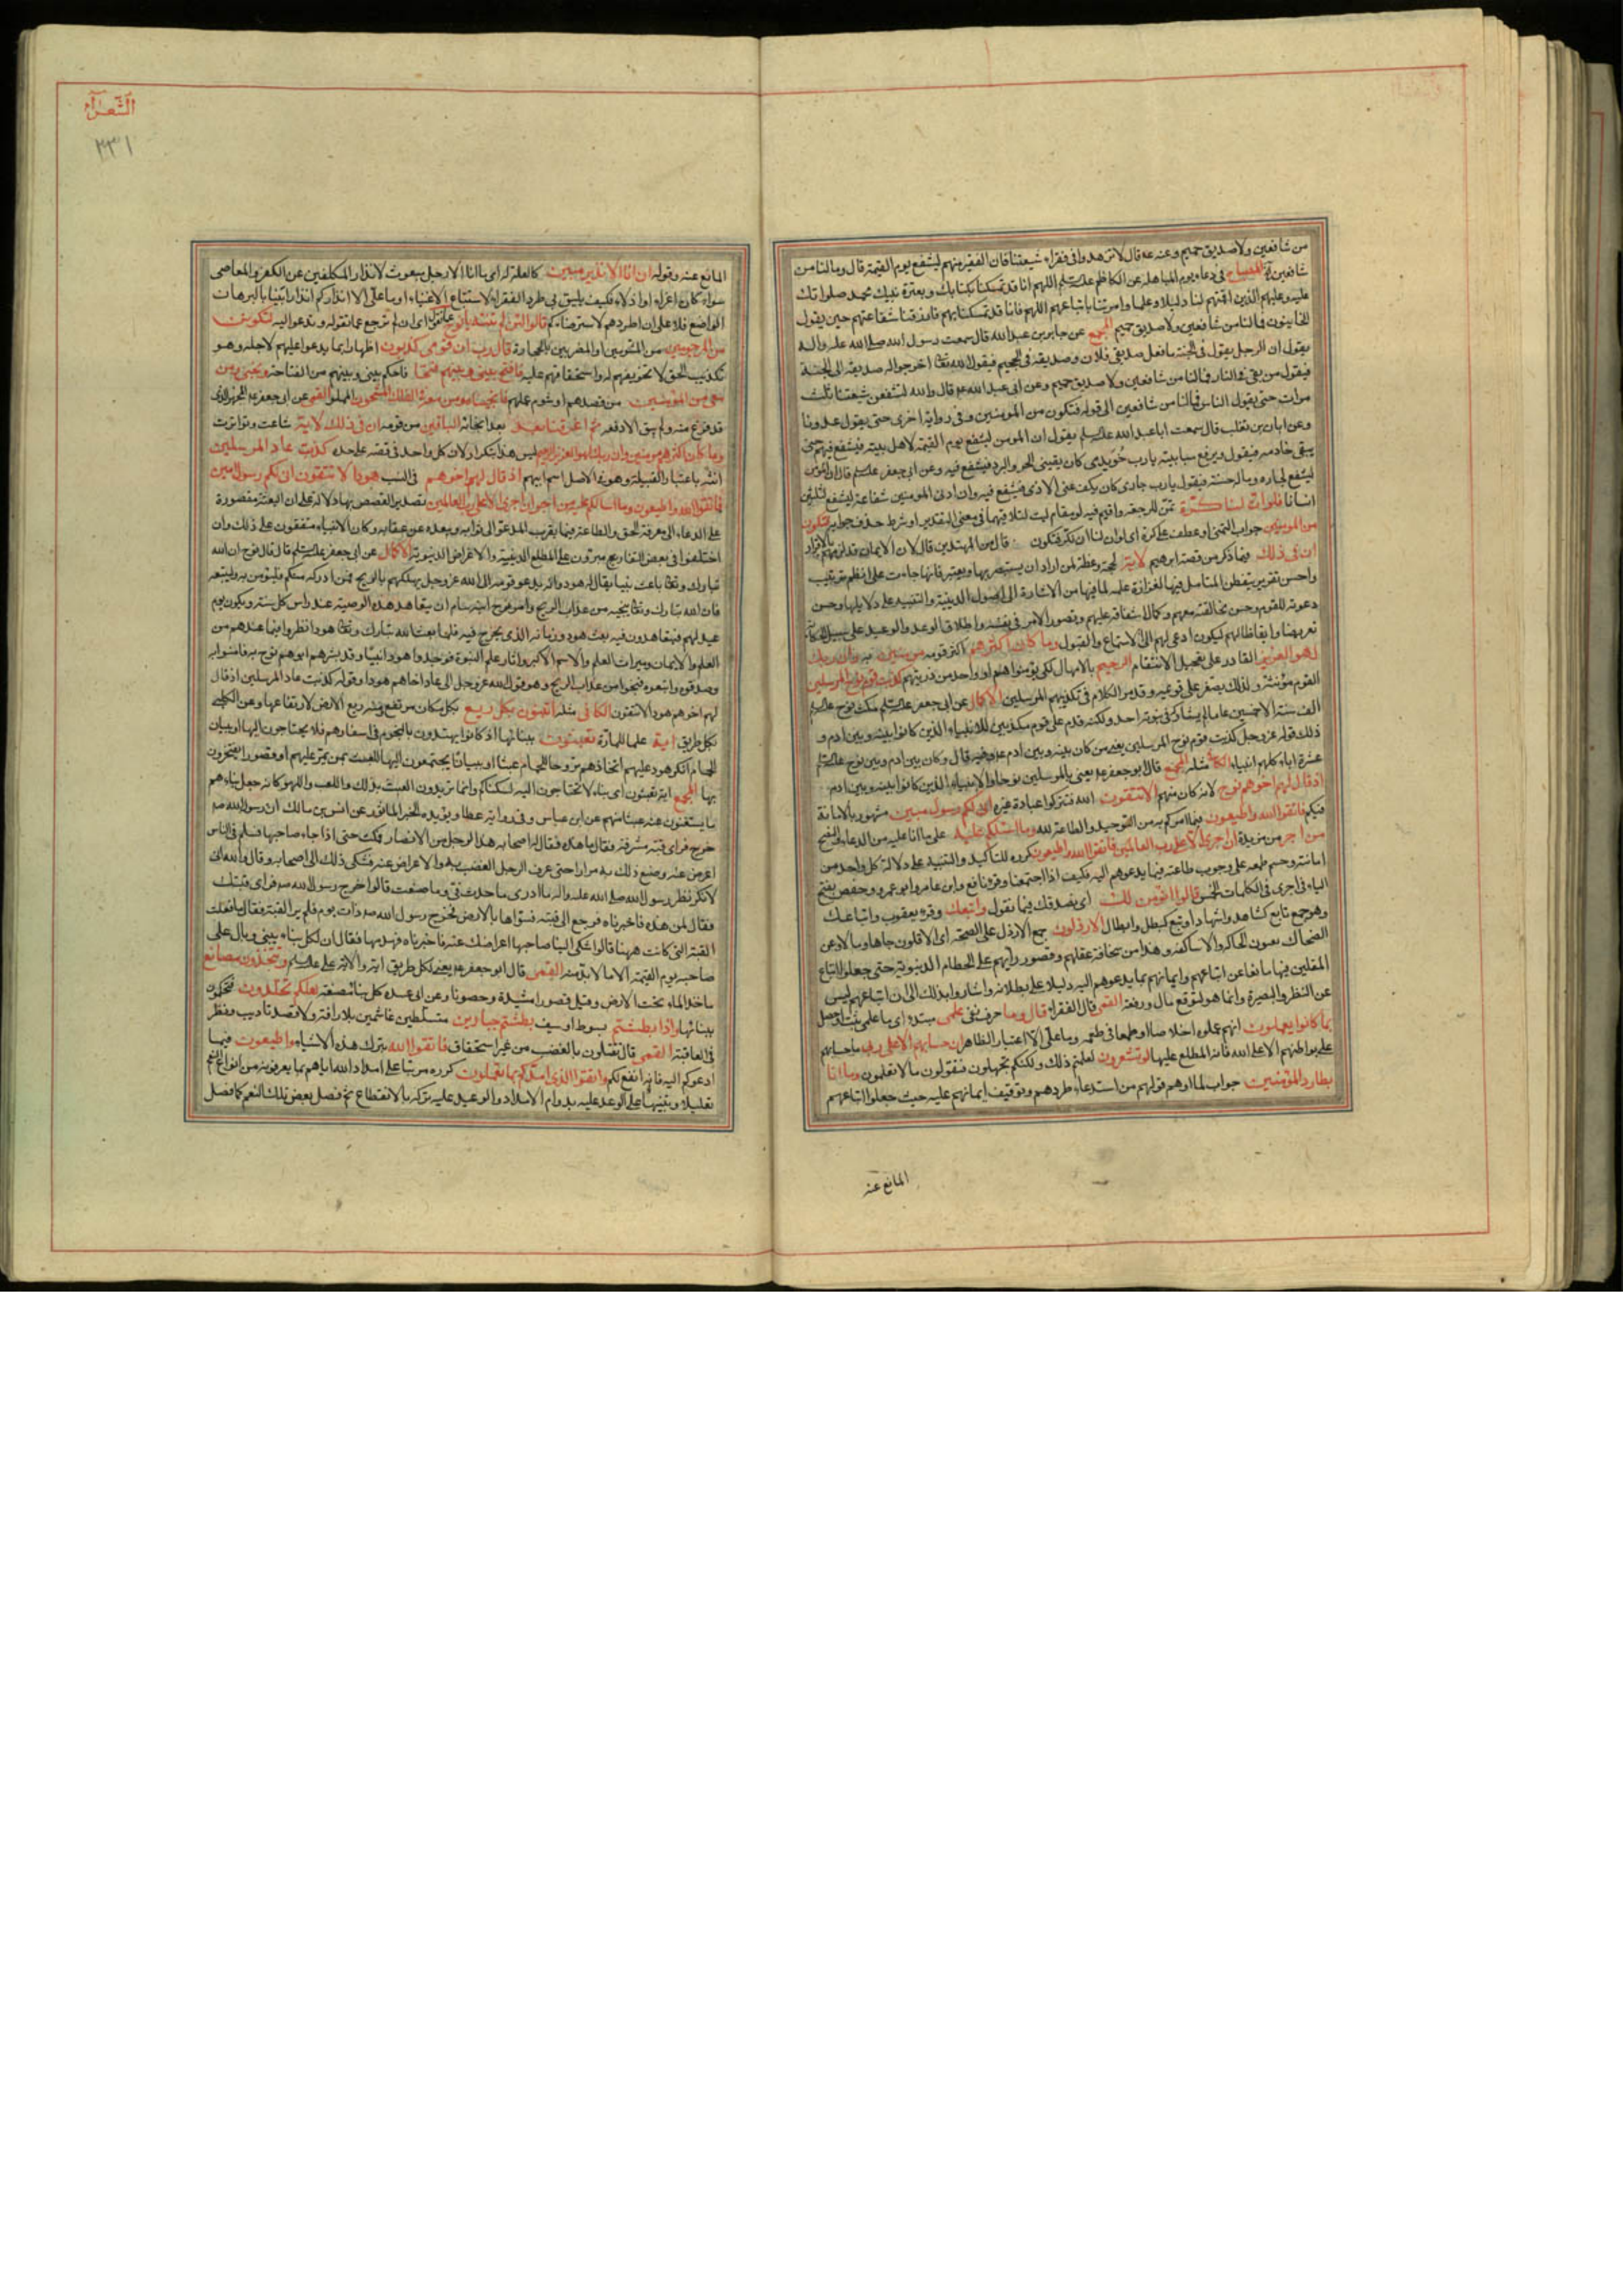 من شافعين ولا صديق حميم وعنه عه قال لا تزهدوا فى فقراء شيعتنا فان الفقير منهم ليشفع يوم القيمة قال وما لنا من
شافعين المصباح فى دعاء يوم المباهله عن الكاظم اللهم انا قد تمسكنا بكتابك وبعترة نبيك محمد صلواتك
عليه وعليهم الذين اقمتهم لنا دليلا وعلما وامرتنا باتباعهم اللهم فانا قد تمسكنا بهم فارزقنا شفاعتهم حين يقول
الخائبون فما لنا من شافعين ولا صديق حميم المجمع عن جابر بن عبد الله قال سمعت رسول الله صلى الله عليه واله
يقول ان الرجل يقول فى الجنة ما فعل صديقى فلان وصديقه فى الجحيم فيقول الله اخرجوا له صديقه الى الجنة
فيقول من بقى فى النار فما لنا من شافعين ولا صديق حميم وعن ابى عبد الله عه قال والله لنشفعن شيعتنا ثلث
مرات حتى يقول الناس فما لنا من شافعين الى قوله فنكون من المومنين وفى رواية اخرى حتى يقول عدونا
وعن ابان بن تغلب قال سمعت ابا عبد الله يقول ان المومن ليشفع يوم القيمة لاهل بيته فيشفع فيهم حتى
يبقى خادمه فيقول ويرفع سبابتيه يا رب خويدمى كان يقينى الحر والبرد فيشفع فيه وعن ابى جعفر قال ان المومن
ليشفع لجاره وما له حسنة فيقول يا رب جارى كان يكف عنى الاذى فيشفع فيه وان ادنى المومنين شفاعة ليشفع لثلثين
انسانا فلو ان لنا كرة تمن للرجعة واقيم فيه لو مقام ليت لتلاقيهما فى معنى التقدير او شرط حذف جوابه فنكون
من المومنين جواب التمنى او عطف على كرة اى لو ان لنا ان نكر فنكون قال من المهتدين قال لان الايمان قد لزمهم بالاقرار
ان فى ذلك فيما ذكر من قصة ابرهيم لاية لحجة وعظة لمن اراد ان يستبصر بها ويعتبر فانها جاءت على انظم ترتيب
واحسن تقرير يتفطن المتامل فيها لغزارة علمه لما فيها من الاشارة الى اصول الدينية والتنبيه على دلايلها وحسن
دعوته للقوم وحسن مخالقته معهم وكمال اشفاقه عليهم وتصور الامر فى نفسه واطلاق الوعد والوعيد على سبيل الحكاية
تعريضا وايقاظا لهم ليكون ادعى لهم الى الاستماع والقبول وما كان اكثرهم اكثر قومه مومنين به وان ربك
لهو العزيز القادر على تعجيل الانتقام الرحيم بالامهال لكى يؤمنوا هم او واحد من ذريتهم كذبت قوم نوح المرسلين
القوم مؤنثة ولذلك يصغر على قويمة وقد مر الكلام فى تكذيبهم المرسلين الاكمال عن ابى جعفر مكث نوح
الف سنة الا خمسين عاما لم يشاركه فى نبوته احد ولكنه قدم على قوم مكذبين للانبياء الذين كانوا بينه وبين ادم و
ذلك قوله عز وجل كذبت قوم نوح المرسلين يعنى من كان بينه وبين ادم عه وفيه قال وكان بين ادم وبين نوح
عشرة اباء كلهم انبياء مثله المجمع قال ابو جعفر عه يعنى بالمرسلين نوحا والانبياء الذين كانوا بينه وبين ادم
اذ قال لهم اخوهم نوح لانه كان منهم الا تتقون الله فتتركوا عبادة غيره انى لكم رسول مبين مشهور بالامانة
فيكم فاتقوا الله واطيعون فيما امركم به من التوحيد والطاعة لله وما اسئلكم عليه على ما انا عليه من الدعاء والنصح
من اجر من مزيدة ان اجرى الا على رب العالمين فاتقوا الله واطيعون كرره للتاكيد والتنبيه على دلالة كل واحد من
امانته وحسم طمعه على وجوب طاعته فيما يدعوهم اليه فكيف اذا اجتمعا وقرء نافع وابن عامر وابو عمرو وحفص بفتح
الياء فى اجرى فى الكلمات الخمس قالوا انؤمن لك اى نصدقك فيما تقول واتبعك وقرء يعقوب واتباعك
وهو جمع تابع كشاهد واشهاد او تبع كبطل وابطال الارذلون جمع الارذل على الصحة اى الاقلون جاها ومالا وعن
الضحاك يعنون الحاكة والاساكفة وهذا من سخافة عقلهم وقصور رأيهم على الحطام الدنيوية حتى جعلوا اتباع
المقلين فيها مانعا عن اتباعهم وايمانهم بما يدعوهم اليه دليلا على بطلانه واشاروا بذلك الى ان اتباعهم ليس
عن النظر والبصيرة وانما هو لتوقع مال ورفعة القمى قال الفقراء قال وما حرف نفى علمى مبتدء اى ما علمى
بما كانوا يعملون انهم عملوه اخلاصا او طمعا فى طعمة وما على الا اعتبار الظاهر ان حسابهم الا على ربى ما حسابهم
على بواطنهم الا على الله فانه المطلع عليها لو تشعرون لعلمتم ذلك ولكنكم تجهلون فتقولون ما لا تعلمون وما انا
بطارد المؤمنين جواب لما اوهم قولهم من استدعاء طردهم وتوقيف ايمانهم عليه حيث جعلوا اتباعهم
المانع عنه
الشعراء
٣٣١
المانع عنه وقوله ان انا الا نذير مبين كالعلة له اى ما انا الا رجل مبعوث لانذار المكلفين عن الكفر والمعاصى
سواء كانوا اعزاء او اذلاء فكيف يليق بى طرد الفقراء لاستتباع الاغنياء او ما على الا انذاركم انذارا بينا بالبرهان
الواضع فلا على ان اطردهم لاسترضاءكم قالوا لئن لم تنته يا نوح عما تقول اى ان لم ترجع عما تقوله وتدعو اليه لتكونن
من المرجومين من المشتومين او المضروبين بالحجارة قال رب ان قومى كذبون اظهارا بما يدعوا عليهم لاجله وهو
تكذيب الحق لا تخويفهم له واستخفافهم عليه فافتح بينى وبينهم فتحا فاحكم بينى وبينهم من الفتاحة ونجنى ومن
معى من المؤمنين من قصدهم او شوم عملهم فانجيناه ومن معه فى الفلك المشحون المملو القمى عن ابى جعفر عه المجهز الذى
قد فرغ منه ولم يبق الا دفعه ثم اغرقنا بعد بعد انجائه الباقين من قومه ان فى ذلك لاية شاعت وتواترت
وما كان اكثرهم مومنين وان ربك لهو العزيز الرحيم ليس هذا بتكرار لان كل واحد فى قصة على حده كذبت عاد المرسلين
انثه باعتبار القبيلة وهو فى الاصل اسم ابيهم اذ قال لهم اخوهم فى النسب هود الا تتقون انى لكم رسول امين
فاتقوا الله واطيعون وما اسالكم عليه من اجر ان اجرى الا على رب العالمين تصدير القصص بها دلالة على ان البعثة مقصورة
على الدعاء الى معرفة الحق والطاعة فيما يقرب المدعو الى ثوابه ويبعده عن عقابه وكان الانبياء متفقون على ذلك وان
اختلفوا فى بعض التفاريع مبرئون على المطامع الدينية والاغراض الدنيوية الاكمال عن ابى جعفر قال قال نوح ان الله
تبارك وتعالى باعث نبيا يقال له هود وانه يدعو قومه الى الله عز وجل يهلكهم بالريح فمن ادركه منكم فليؤمن به وليتبعه
فان الله تبارك وتعالى ينجيه من عذاب الريح وامر نوح ابنه سام ان يتعاهد هذه الوصية عند راس كل سنة ويكون يوم
عيد لهم فيتعاهدون فيه بعث هود وزمانه الذى يخرج فيه فلما بعث الله تبارك وتعالى هودا نظروا فيما عندهم من
العلم والايمان وميراث العلم والاسم الاكبر واثار علم النبوة فوجدوا هودا نبيا وقد بشرهم ابوهم نوح به فامنوا به
وصدقوه واتبعوه فنجوا من عذاب الريح وهو قول الله عز وجل الى عاد اخاهم هودا وقوله كذبت عاد المرسلين اذ قال
لهم اخوهم هود الا تتقون الكافى مثله اتبنون بكل ريع بكل مكان مرتفع ومنه ريع الارض لارتفاعها وعن الكلبى
بكل طريق اية علما للمارة تعبثون ببنائها اذ كانوا يهتدون بالنجوم فى اسفارهم فلا يحتاجون اليها او بنيان
الحمام انكر هود عليهم اتخاذهم بروجا للحمام عبثا او بنيانا يجتمعون اليها للعبث بمن يمر عليهم او قصورا يفتخرون
بها المجمع اية تعبثون اى بناء لا تحتاجون اليه لسكناكم وانما تريدون العبث بذلك واللعب واللهو كانه جعل بناءهم
ما يستغنون عنه عبثا منهم عن ابن عباس وفى رواية عطا ويؤيده الخبر الماثور عن انس بن مالك ان رسول الله صه
خرج فراى قبة مشرفة فقال ما هذه فقال له اصحابه هذا لرجل من الانصار فمكث حتى اذا جاء صاحبها فسلم فى الناس
اعرض عنه وصنع ذلك به مرارا حتى عرف الرجل الغضب به والاعراض عنه فشكى ذلك الى اصحابه وقال والله انى
لانكر نظر رسول الله صلى الله عليه واله ما ادرى ما حدث فى وما صنعت قالوا خرج رسول الله صه فراى قبتك
فقال لمن هذه فاخبرناه فرجع الى قبته فسواها بالارض فخرج رسول الله صه ذات يوم فلم ير القبة فقال ما فعلت
القبة التى كانت ههنا قالوا شكى الينا صاحبها اعراضك عنه فاخبرناه فهدمها فقال ان لكل بناء يبنى وبال على
صاحبه يوم القيمة الا ما لا بد منه القمى قال ابو جعفر عه يعنى لكل طريق اية والاية على وتتخذون مصانع
ماخذ الماء تحت الارض وقيل قصورا مشيدة وحصونا وعن ابى عبيده كل بناء مصنعة لعلكم تخلدون فتحكمون
بنيانها واذا بطشتم بسوط او سيف بطشتم جبارين متسلطين غاشمين بلا رافة ولا قصد تاديب ونظر
فى العاقبة القمى قال تقتلون بالغضب من غير استحقاق فاتقوا الله بترك هذه الاشياء واطيعون فيما
ادعوكم اليه فانه انفع لكم واتقوا الذى امدكم بما تعملون كرره مرتبا على امداد الله اياهم بما يعرفونه من انواع النعم
تعليلا وتنبيها على الوعد عليه بدوام الامداد والوعيد عليه تركه بالانقطاع ثم فصل بعض تلك النعم كما فصل